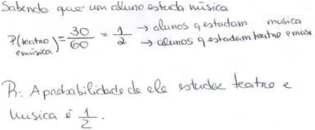 Sabendo que um aluno estuda música
P(teatro e música) = 30/60 = 1/2 → alunos q estudam musica
→ alunos q estudam teatro e música
R: A probabilidade de ele estudar teatro e
musica é 1/2.